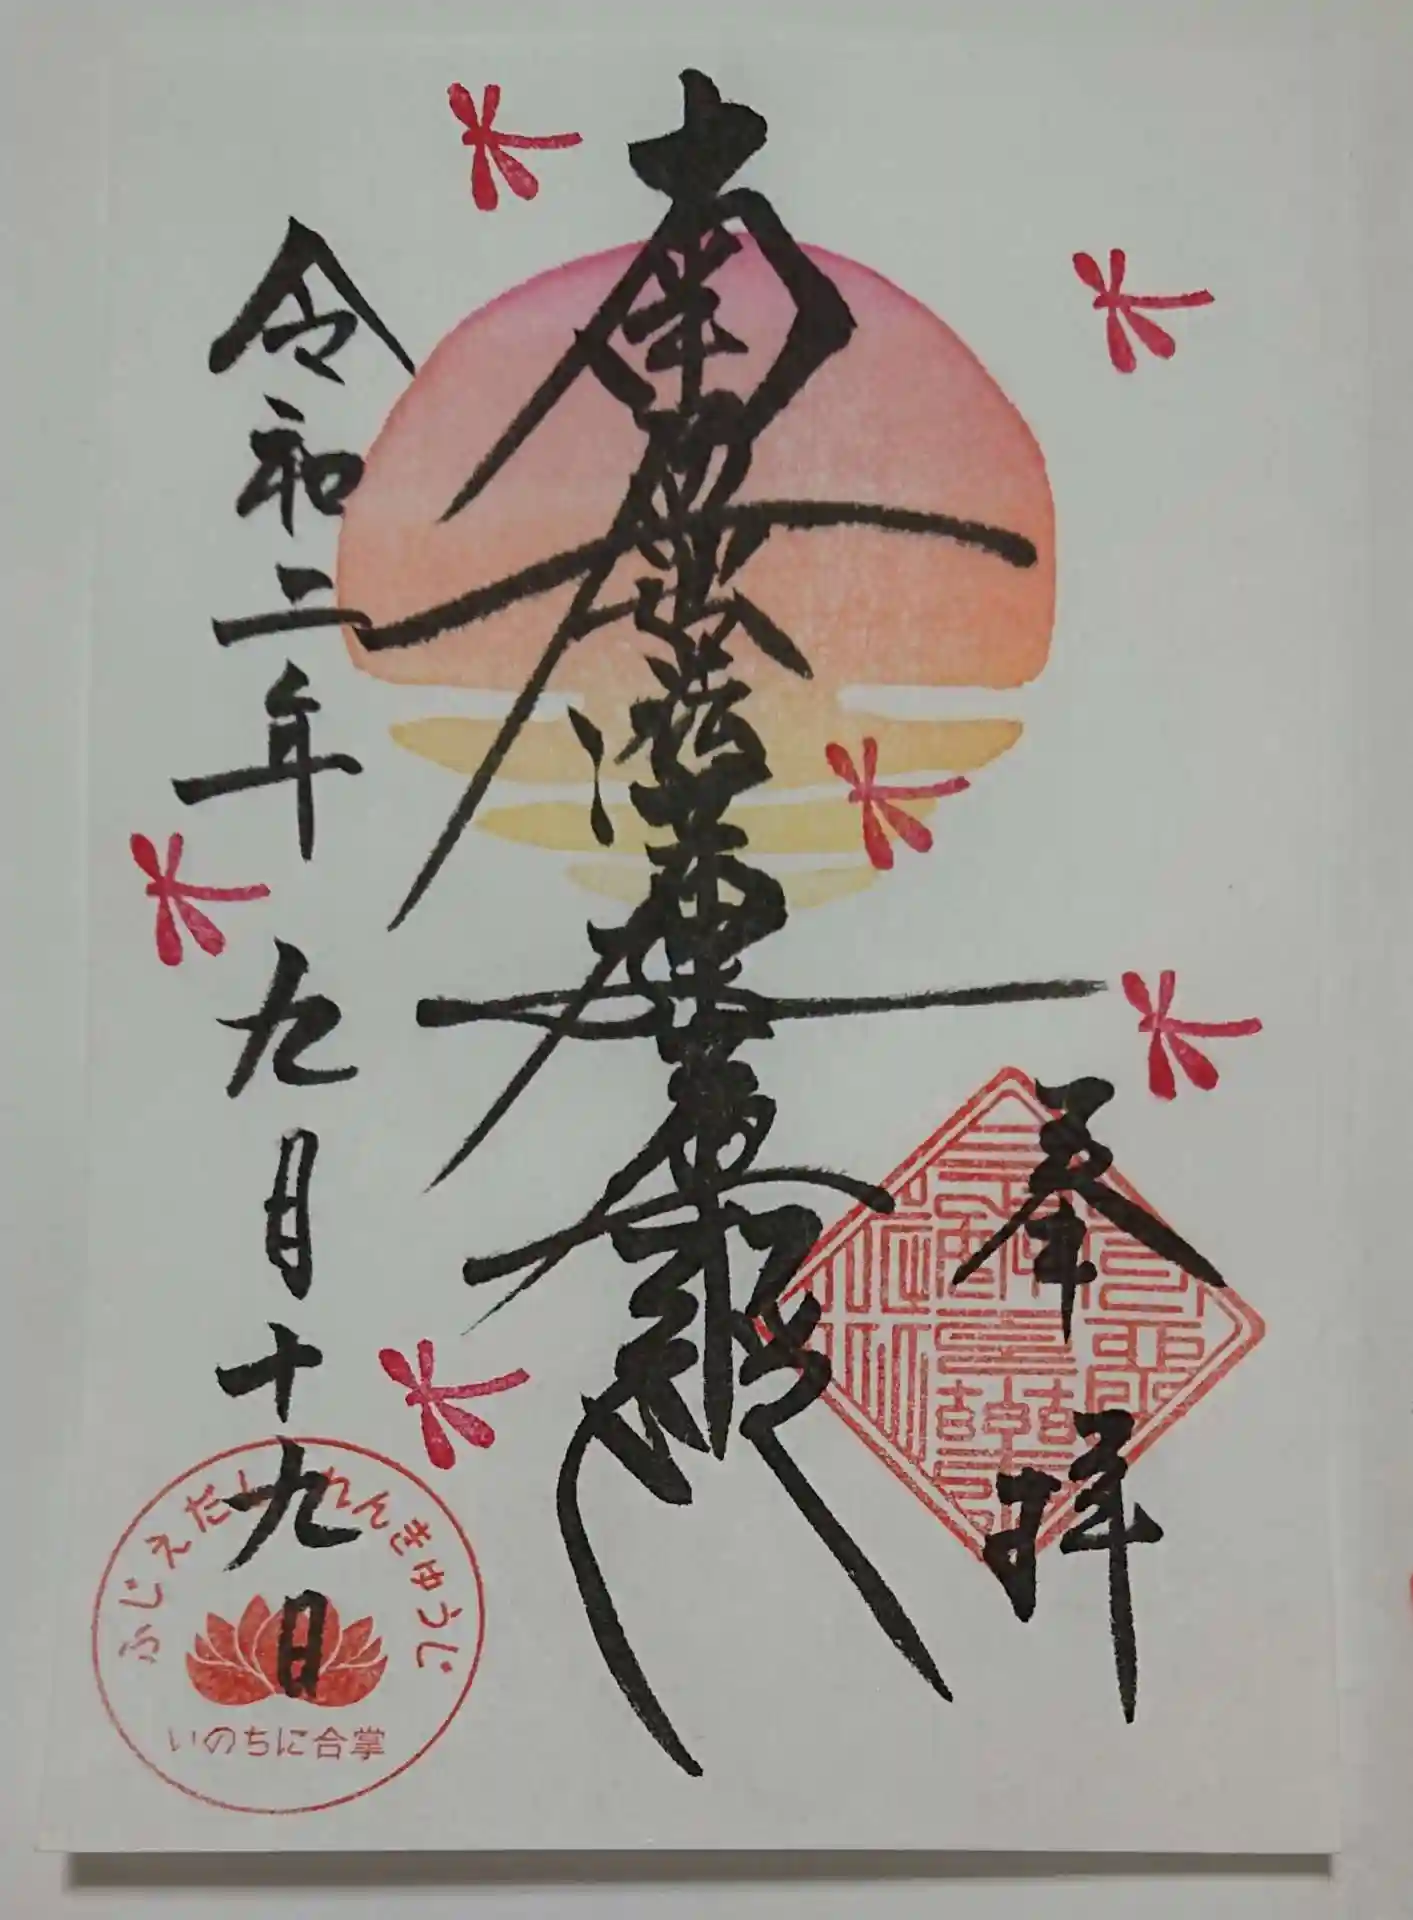 奉拝
南無妙法蓮華経
令和二年九月十九日
ふじえだ れんきゅうじ
いのちに合掌